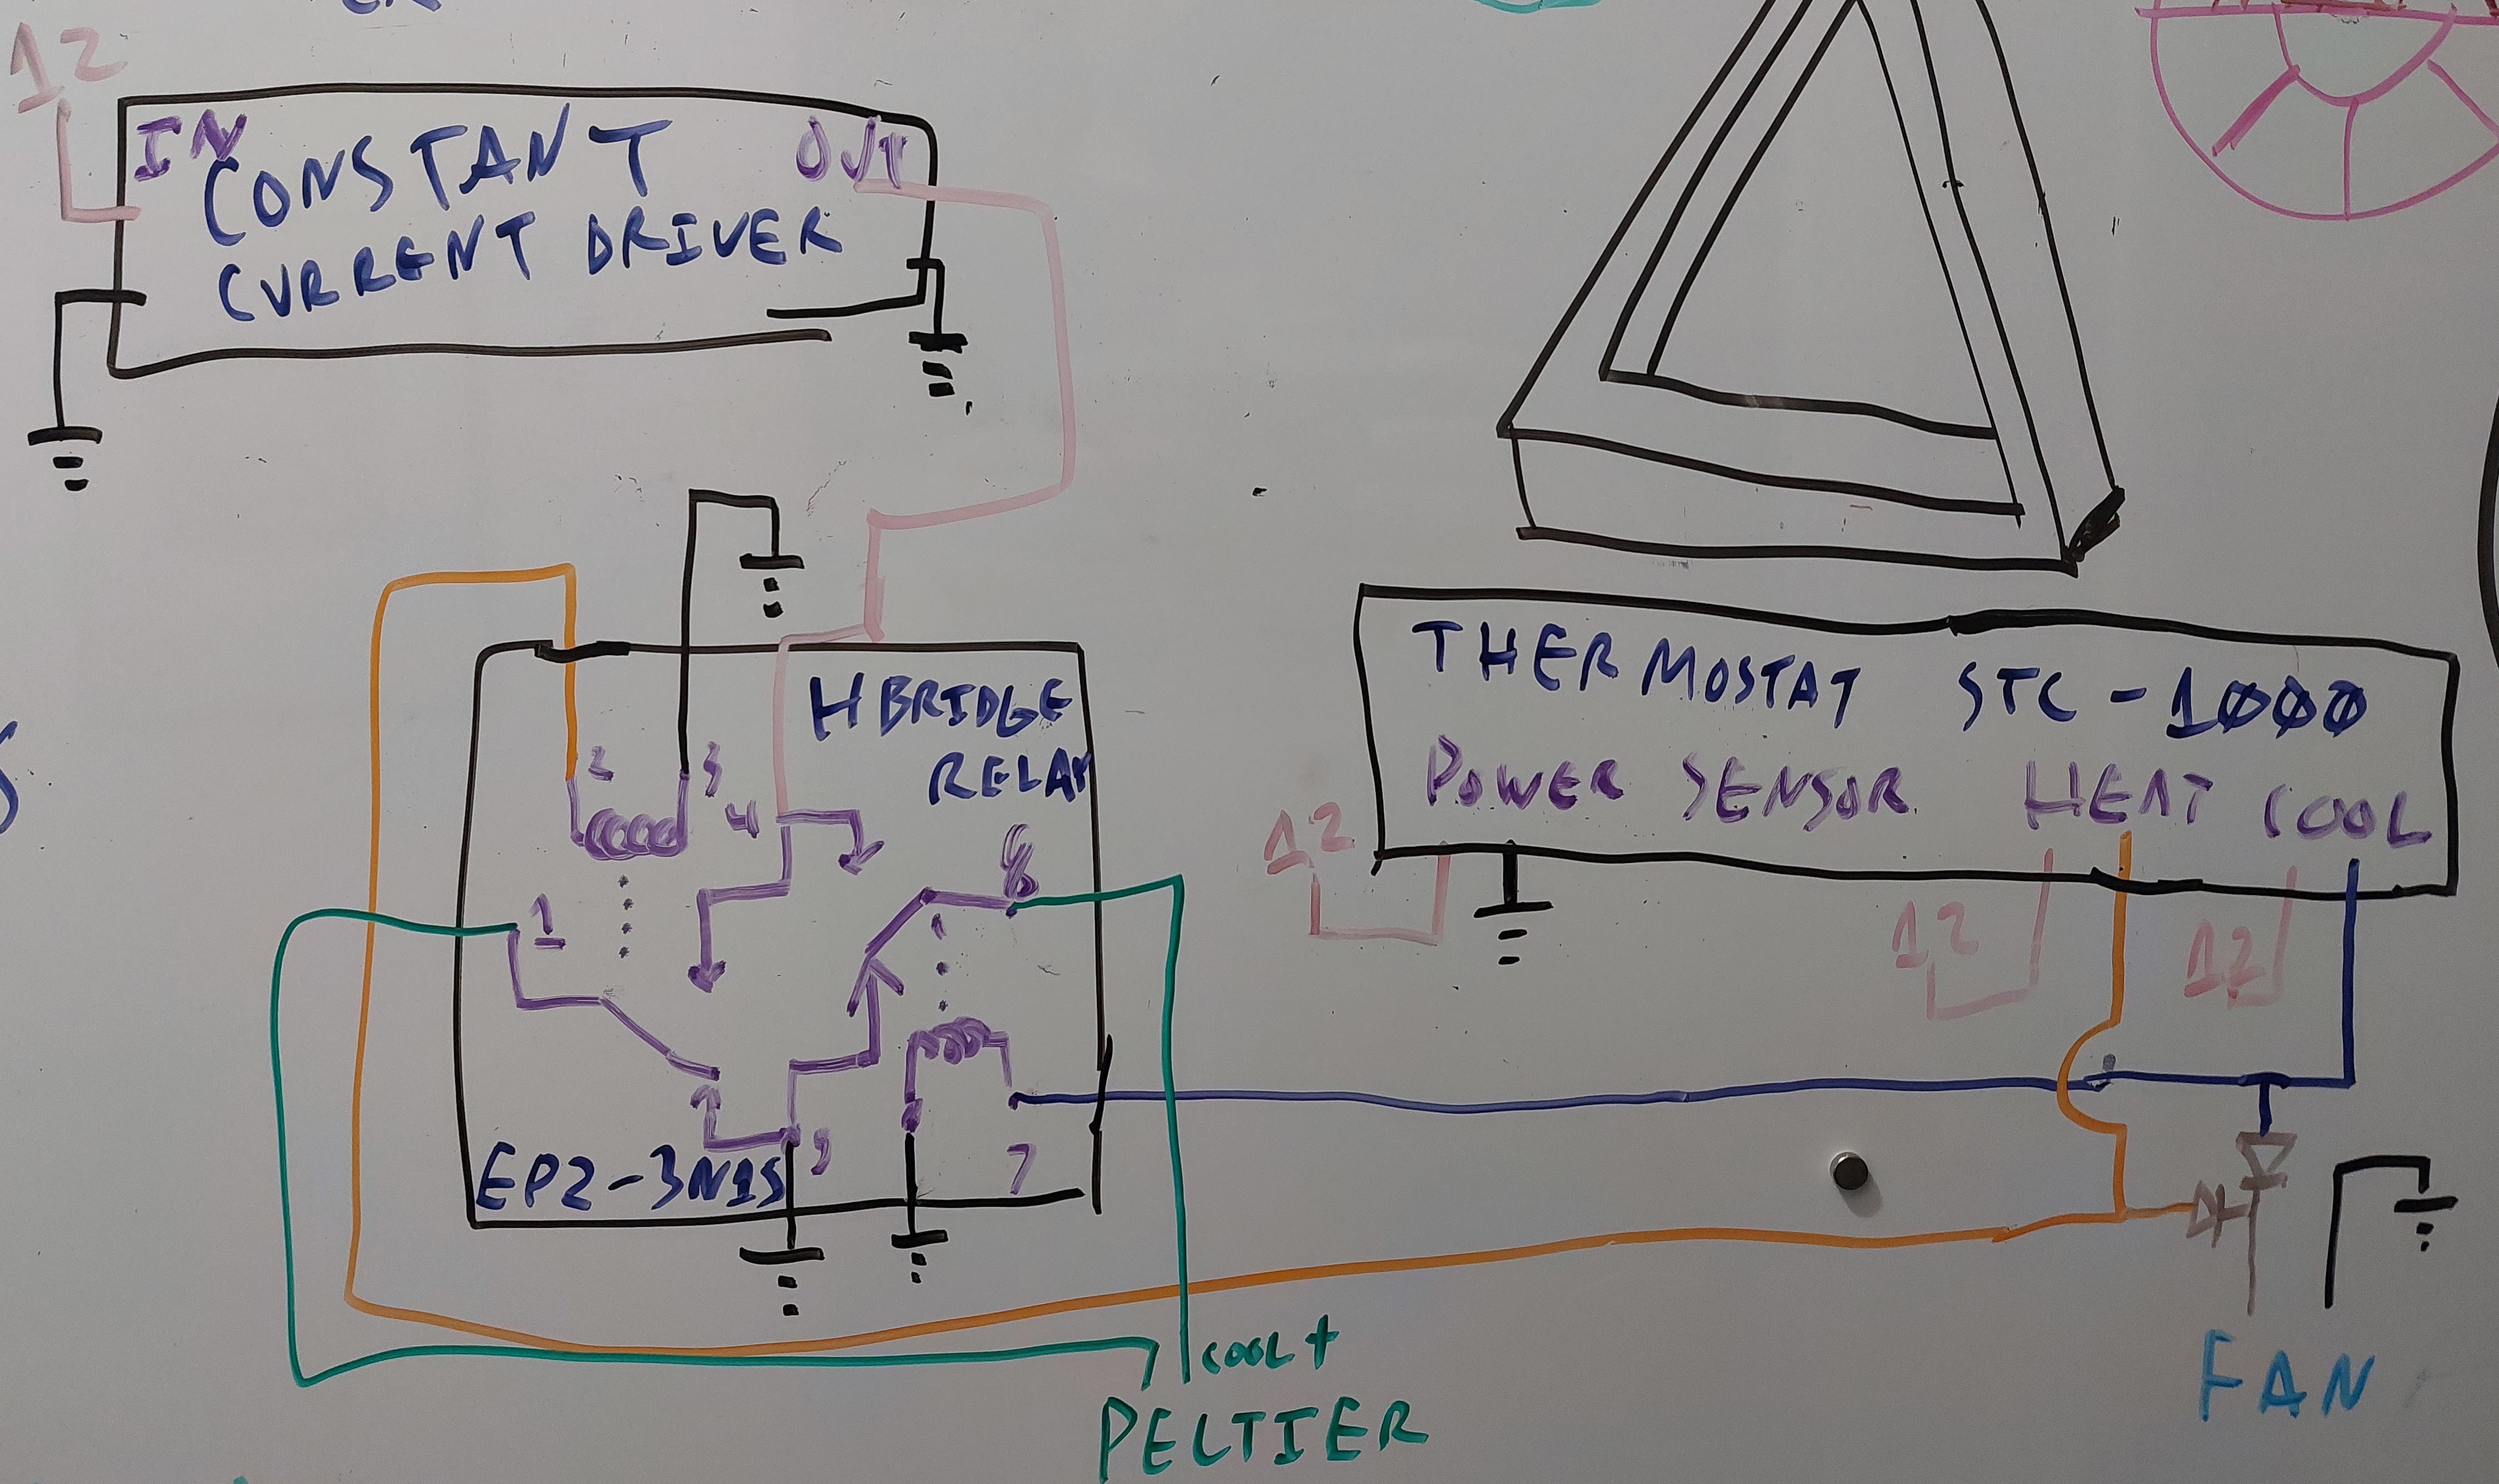 12
IN
OUT
CONSTANT
CURRENT DRIVER
H BRIDGE
RELAY
2
3
4
8
1
9
7
EP2-3N1S
THERMOSTAT STC-1000
POWER SENSOR HEAT COOL
12
12
12
COOL +
PELTIER
FAN